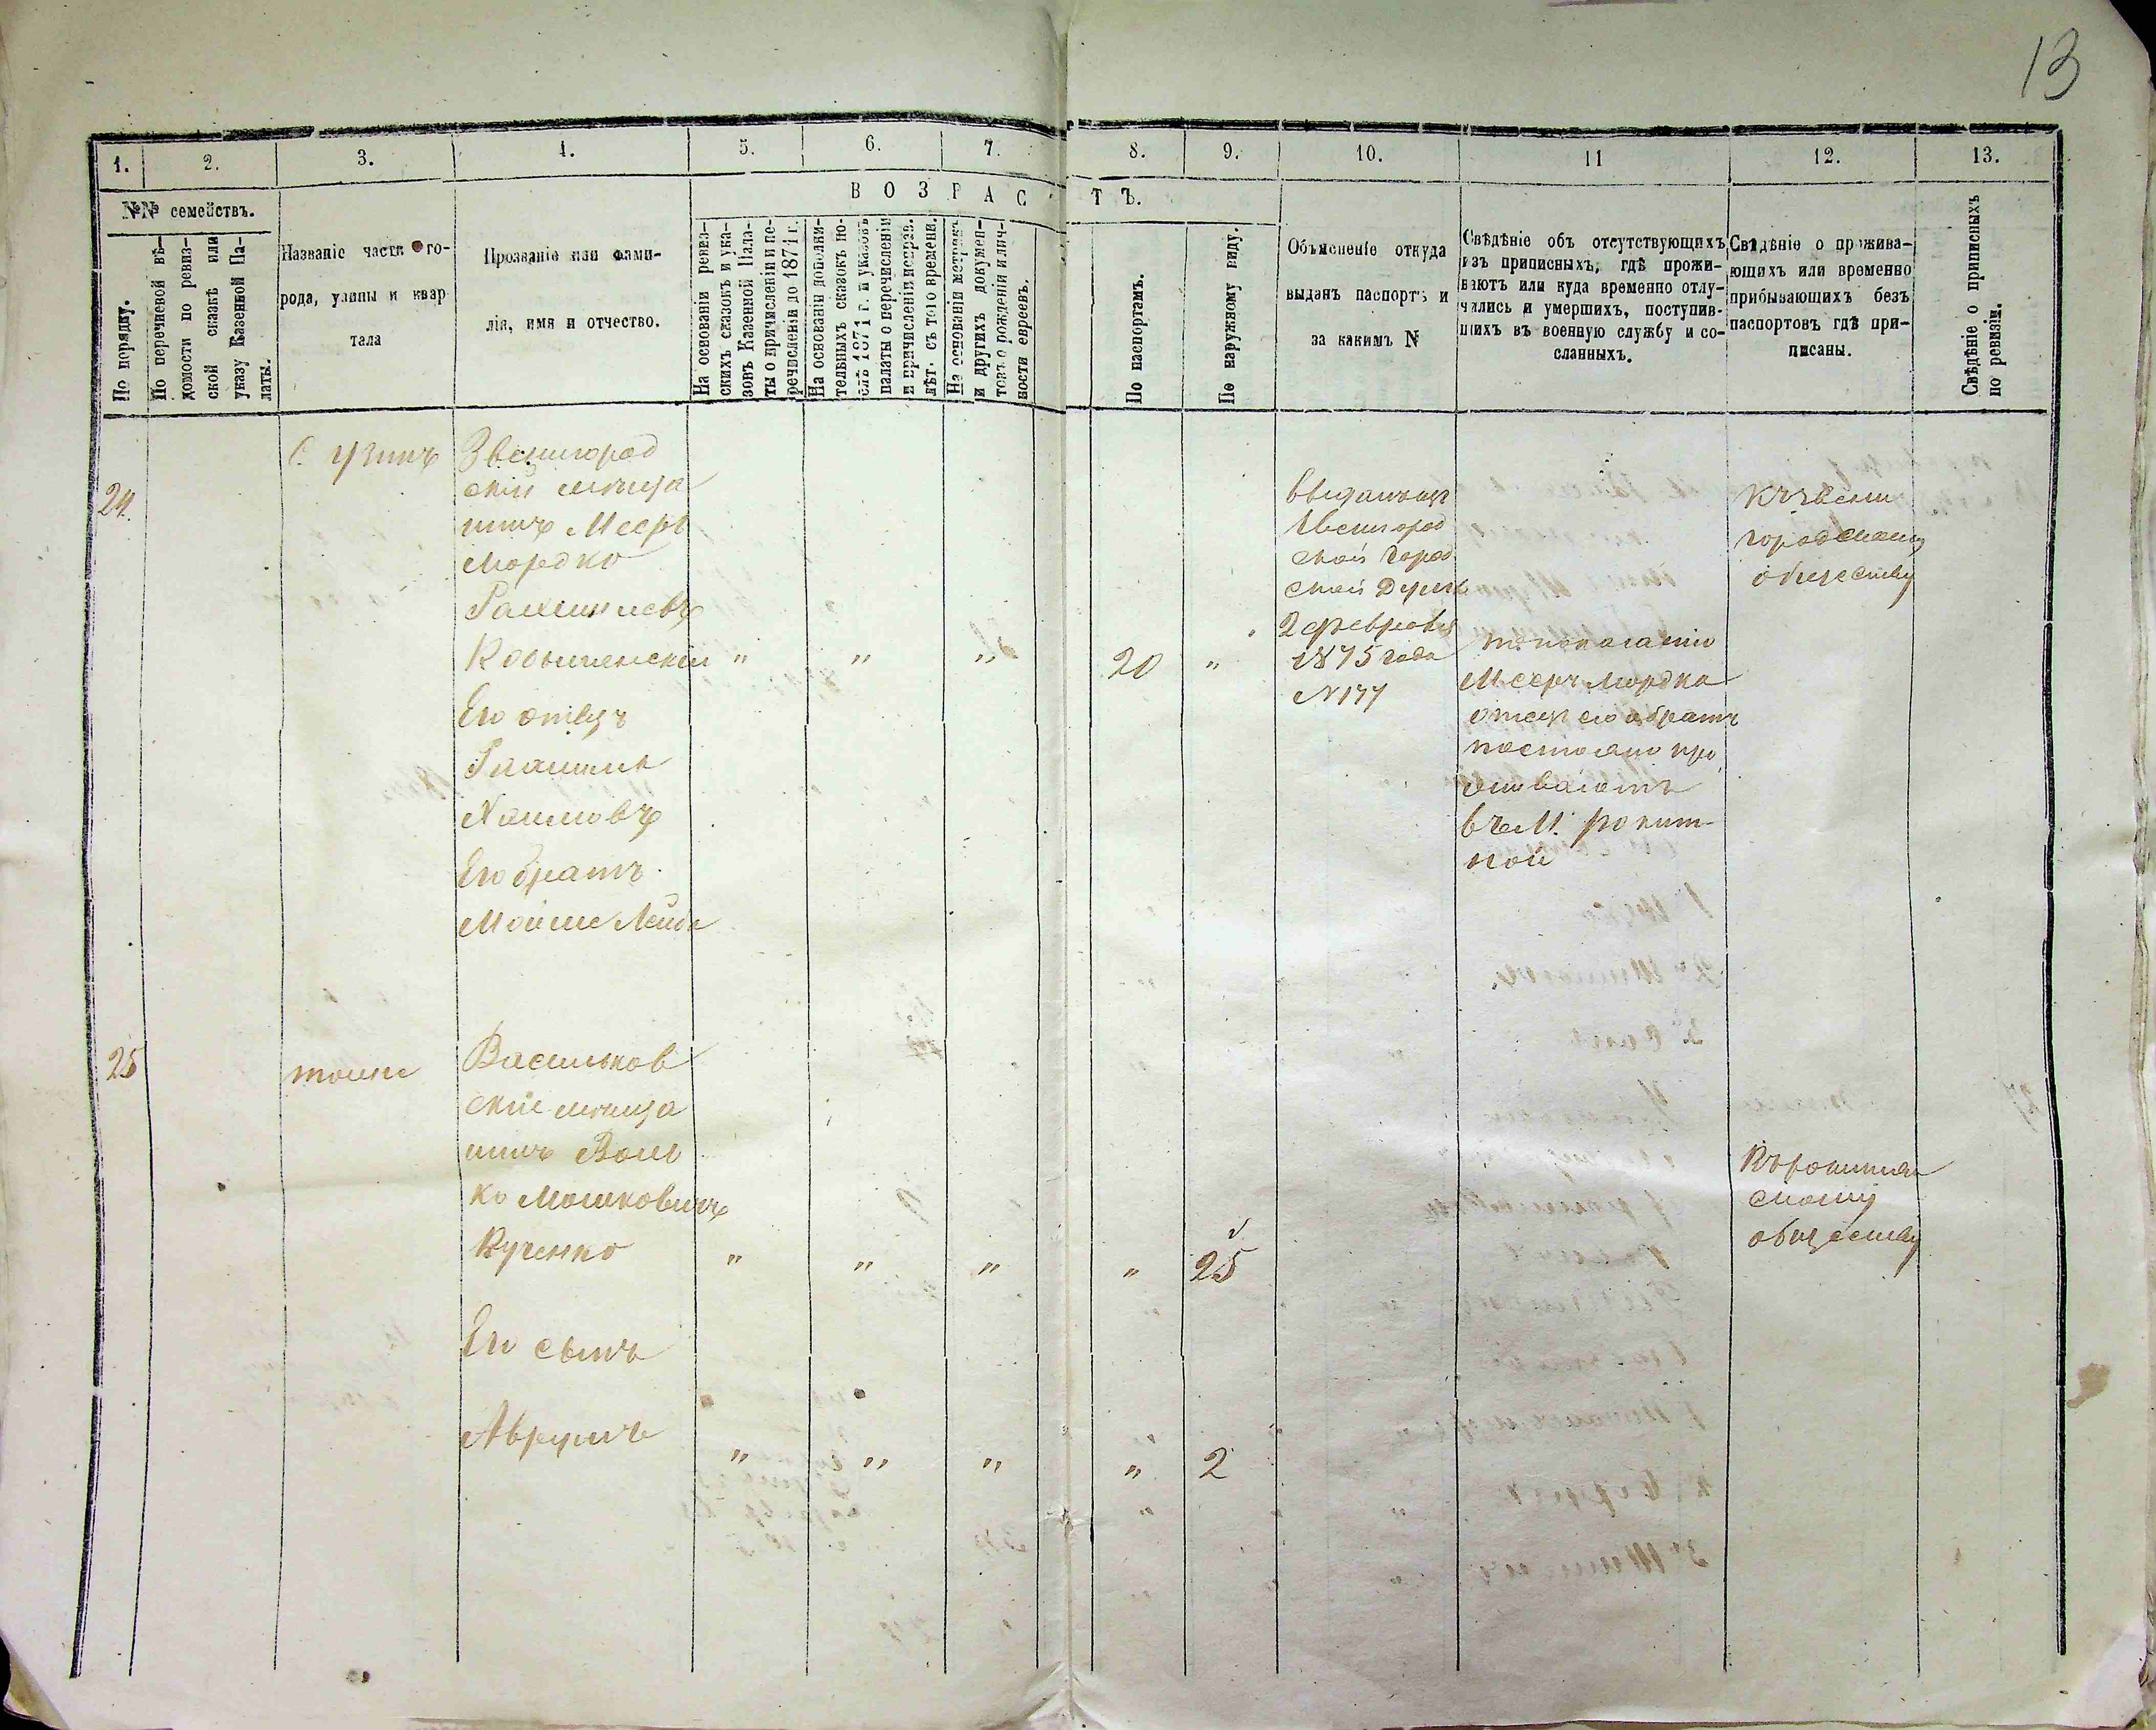 13
1.
2.
3.
4.
5.
6.
7.
8.
9.
10.
11
12.
13.
№№ семействъ.
По порядку.
По перечневой вѣ-
домости по ревиз-
ской сказкѣ или
указу Казенной Па-
латы.
Названіе части го-
рода, улицы и квар
тала
Прозваніе или фами-
лія, имя и отчество.
ВОЗРАСТЪ.
На основаніи ревиз-
скихъ сказокъ и ука-
зовъ Казенной Пала-
ты о причисленіи и пе-
речисленіи до 1871 г.
На основаніи дополни-
тельныхъ сказокъ по-
слѣ 1871 г. и указовъ
палаты о перечисленіи
и причисленіи исправ.
лѣт. съ того времени.
На основаніи метрикъ
и другихъ докумен-
товъ о рожденіи и лич-
ности евреевъ.
По паспортамъ.
По наружному виду.
Объясненіе откуда
выданъ паспортъ и
за какимъ N
Свѣдѣніе объ отсутствующихъ
изъ приписныхъ, гдѣ прожи-
ваютъ или куда временно отлу-
чились и умершихъ, поступив-
шихъ въ военную службу и со-
сланныхъ.
Свѣдѣніе о прожива-
ющихъ или временно
прибывающихъ безъ
паспортовъ гдѣ при-
писаны.
Свѣдѣніе о приписныхъ
по ревизіи.
24.
С. Узинъ
Звенигород
скій мѣща
нинъ Мееръ
Мордко
Кобыленскій " " " 20 "
Его отецъ
Хаимовъ
Его братъ
Мойше Лейба
выданъ изъ
Звенигород
ской Город
ской Думы
2 февраля
1875 года
N 177
по показанію
Мееръ Мордка
отецъ его и братъ
постоянно про
живаютъ
въ М. Рокит-
ной
Къ Звени
городскому
обществу
25
тоже
Васильков
скій мѣща
нинъ Воль
ко Мошковичъ
Кученко " " " " 25
Его сынъ
Аврумъ " " " " 2
Къ рокитнян
скому
обществу